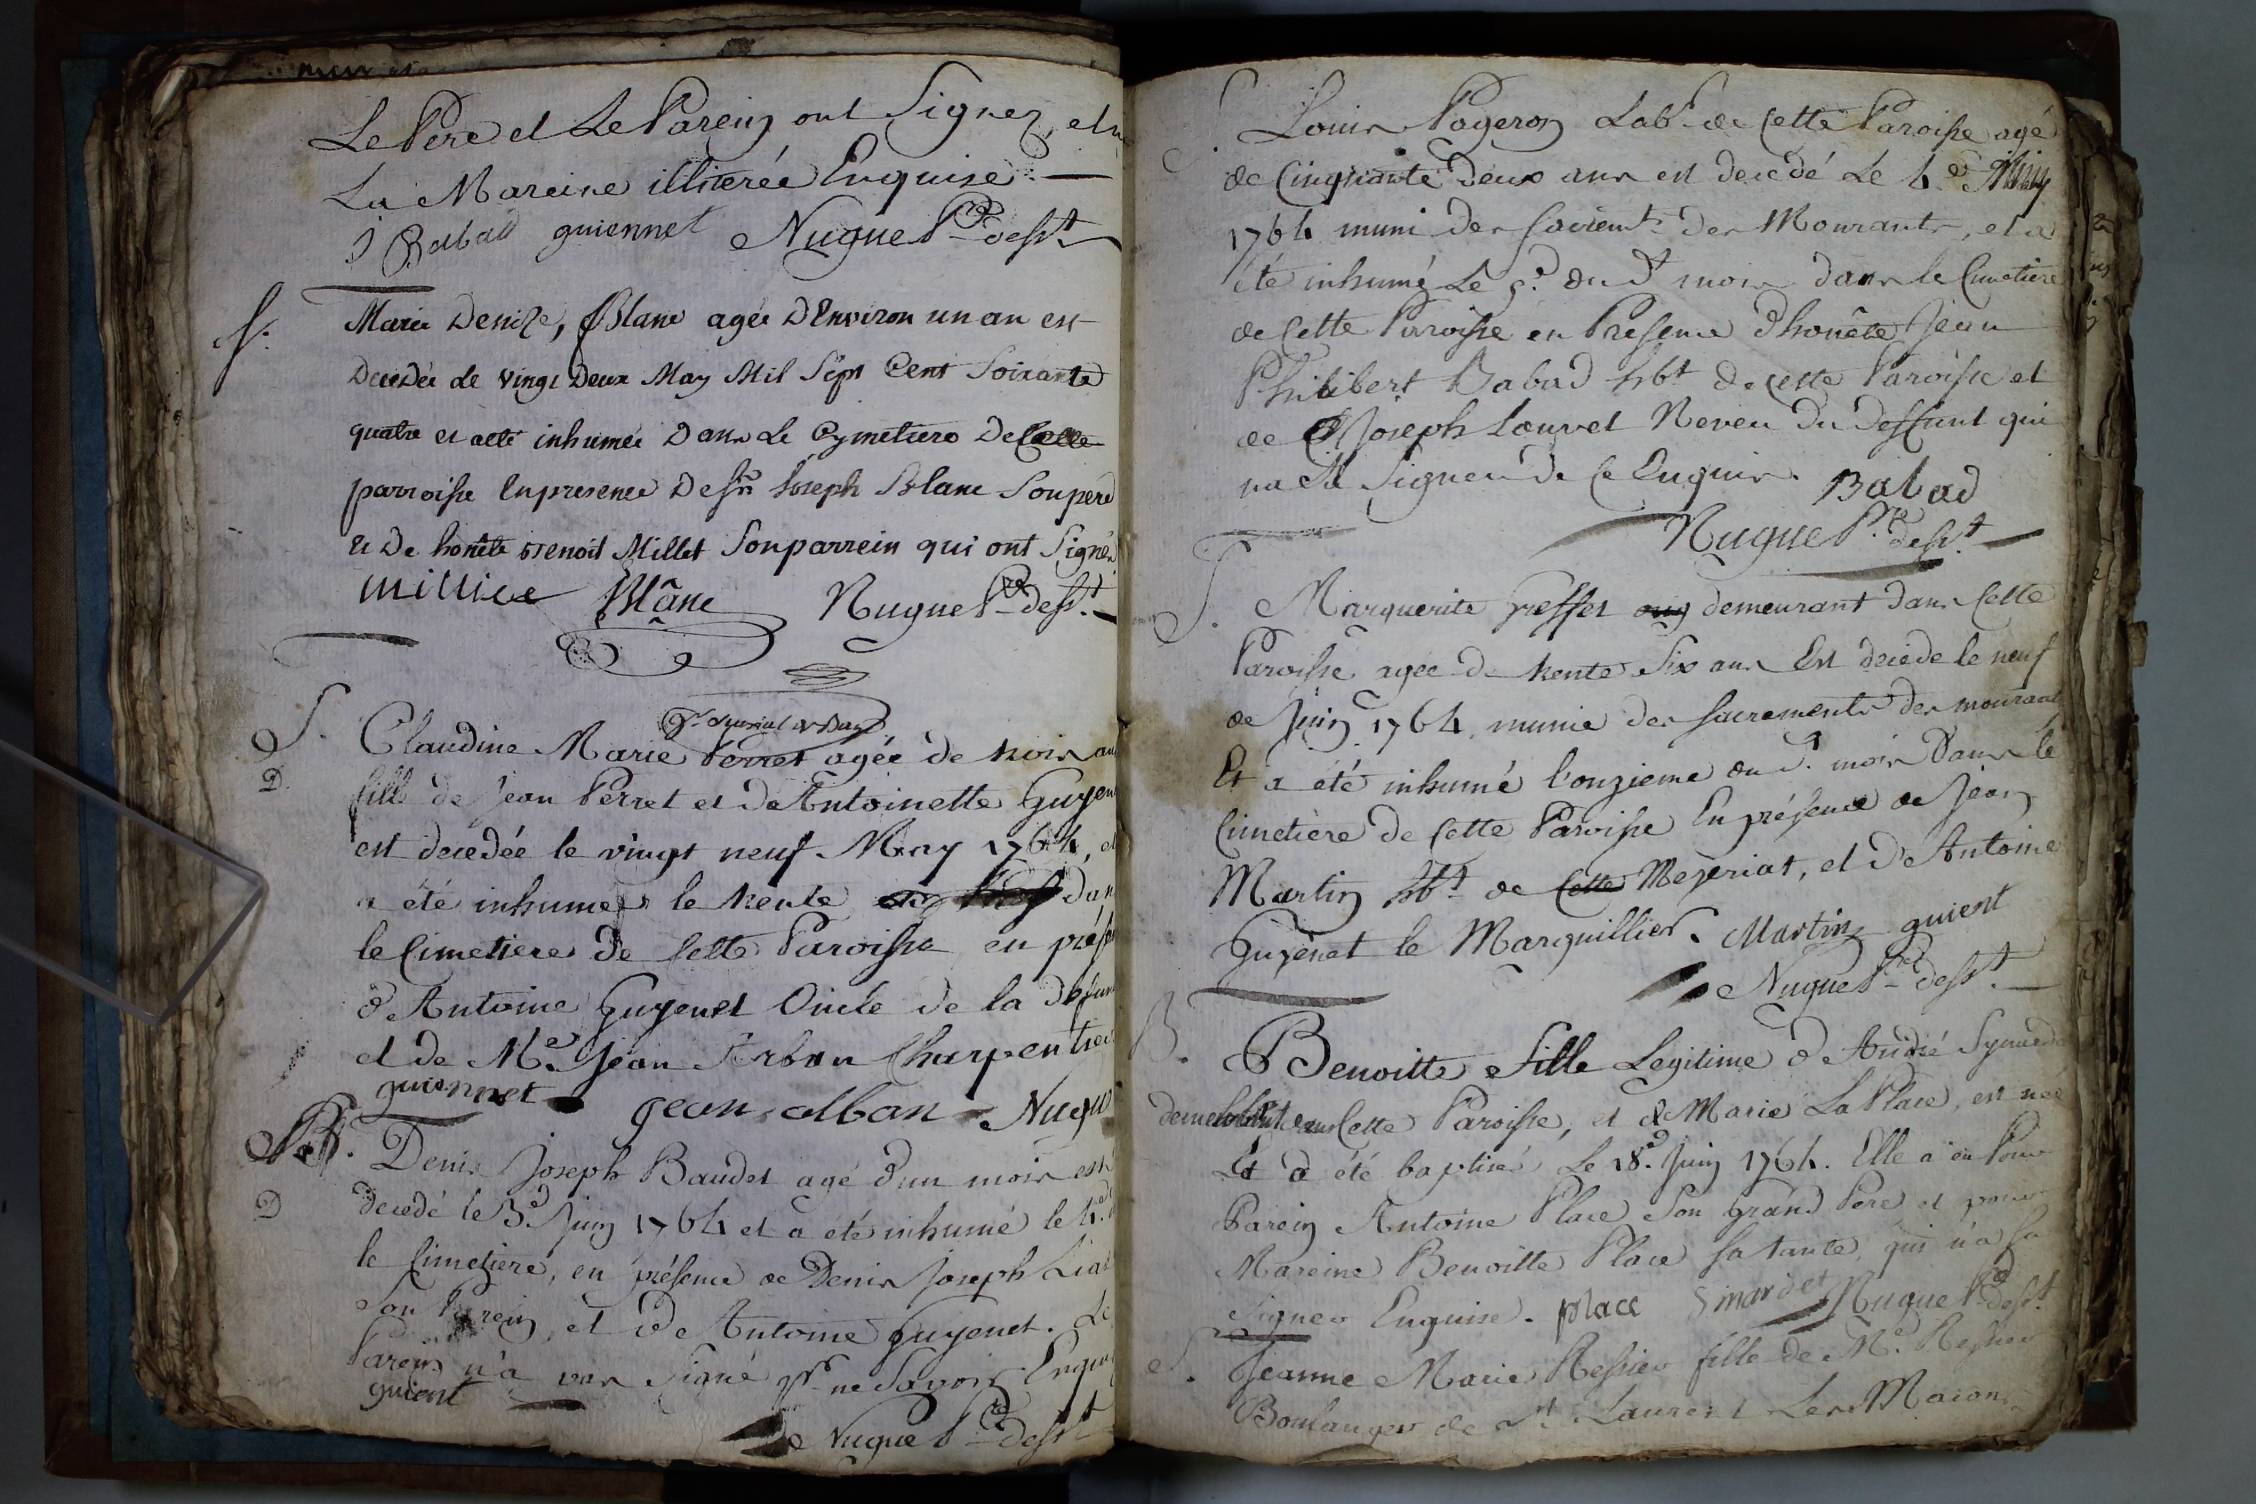 Le Pere et Le Parein ont Signez, et
La Mareine illiterée Enquise.
J Babad guiennet Nugue Ptre desst
S.
Marie Denize, Blanc agée D'Environ un an est
Decedée Le vingt Deux May Mil Sept Cent Soixante
quatre et a eté inhumée Dans Le Cymetiere De Cette
parroisse En presence De Sr Joseph Blanc Son pere
Et De honête Benoit Millet Son parrein qui ont Signés
Millice Blânc Nugue Ptre desst.
S.
Claudine Marie Perret agée de trois an
D.
fille de Jean Perret et de Antoinette Guyen
est decedée le vingt neuf May 1764, et
a été inhumée le trente dan
le Cimetiere de Cette Paroisse en prése
d'Antoine Guyenet Oncle de la Defun
et de Me. Jean Arban Charpentier
guiennet jean alban Nugu
S.
Denis Joseph Baudet agé d'un mois est
D
decedé le 3e. Juin 1764 et a été inhumé le 4e. d
le Cimetiere, en présence de Denis Joseph Liat
Son Parein, et de Antoine Guyenet. Le
Parein n'a pas Signé pr. ne Savoir Enqui
guient
Nugue Ptre desst
S.
Louis Pageron Labr. de Cette Paroisse agé
de Cinquante Deux ans est decedé Le 4e Juin
1764 muni des Sacremts. des Mourants, et a
été inhumé Le 5e. du dt mois dans le Cimetiere
de Cette Paroisse en Presence d'honête Jean
Philibert Babad hbt de cette Paroisse et
de Joseph Louvet Neveu du Deffunt qui
na Sû Signer de Ce Enquis. Babad
Nugue Ptre desst.
S.
Marguerite Fresset demeurant dans Cette
Paroisse agée de trente Six ans Est decede le neuf
de Juin 1764, munie des Sacrements des mourants
Et a été inhumé l'onzieme du d. mois Dans le
Cimetière de Cette Paroisse En présence de Jean
Martin hbt de Cette Mezeriat, et d'Antoine
Guyenet le Marguillier. Martin guient
Nugue Ptre desst.
B.
Benoitte Fille Legitime d'André Symard
dans Cette Paroisse, et de Marie La Place, est née
Et a été baptisée Le 18e. Juin 1764. Elle a eu Pour
Parein Antoine Place Son Grand Pere et pour
Mareine Benoitte Place Sa tante, qui n'a Sû
Signer Enquise. place Simardet Nugue Ptre desst.
S.
Jeanne Marie Ressier fille de Me. Ressier
Boulanger de St. Laurent Les Macon